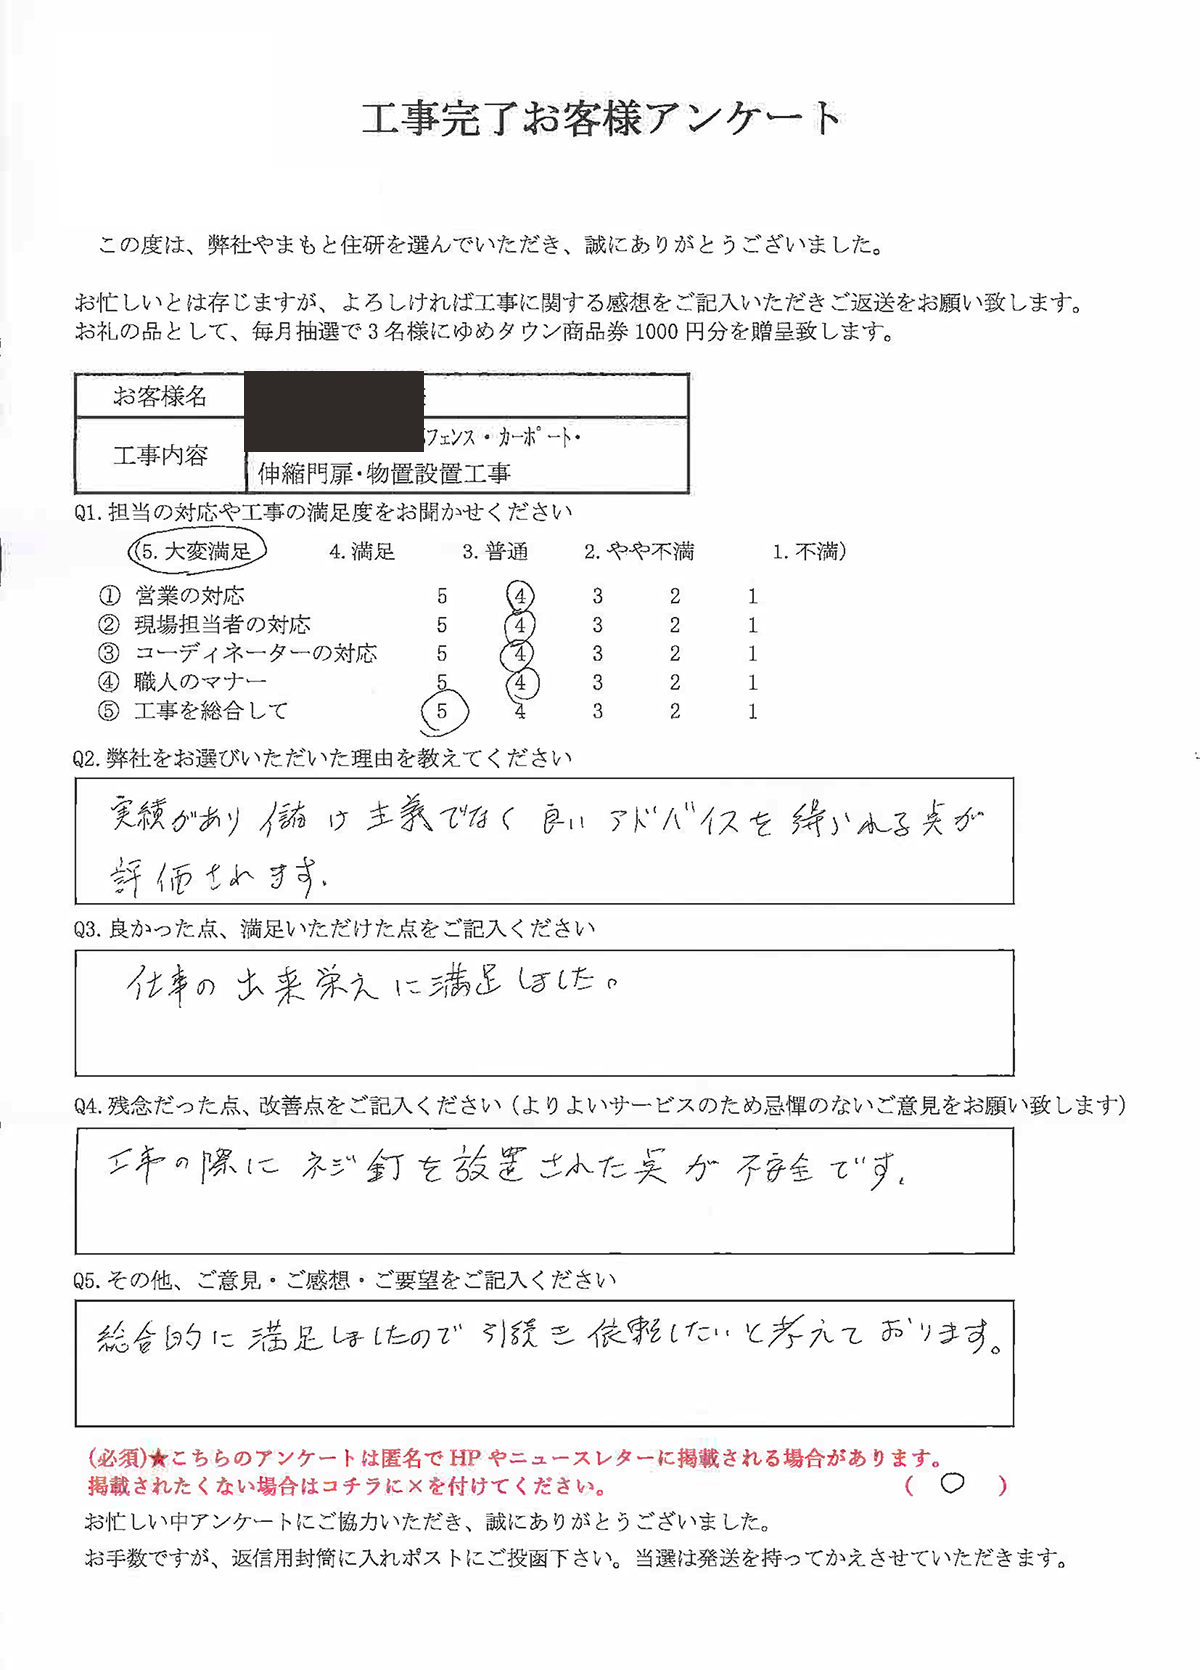 工事完了お客様アンケート
この度は、弊社やまもと住研を選んでいただき、誠にありがとうございました。
お忙しいとは存じますが、よろしければ工事に関する感想をご記入いただきご返送をお願い致します。
お礼の品として、毎月抽選で3名様にゆめタウン商品券1000円分を贈呈致します。
お客様名
工事内容 フェンス・カーポート・
伸縮門扉・物置設置工事
Q1.担当の対応や工事の満足度をお聞かせください
(5.大変満足 4.満足 3.普通 2.やや不満 1.不満)
① 営業の対応 5 4 3 2 1
② 現場担当者の対応 5 4 3 2 1
③ コーディネーターの対応 5 4 3 2 1
④ 職人のマナー 5 4 3 2 1
⑤ 工事を総合して 5 4 3 2 1
Q2.弊社をお選びいただいた理由を教えてください
実績があり儲け主義でなく良いアドバイスを得られる点が
評価されます.
Q3.良かった点、満足いただけた点をご記入ください
仕事の出来栄えに満足しました。
Q4.残念だった点、改善点をご記入ください(よりよいサービスのため忌憚のないご意見をお願い致します)
工事の際にネジ釘を放置された点が不安全です.
Q5.その他、ご意見・ご感想・ご要望をご記入ください
総合的に満足しましたので引続き依頼したいと考えております。
(必須)★こちらのアンケートは匿名でHPやニュースレターに掲載される場合があります。
掲載されたくない場合はコチラに×を付けてください。 ( ○ )
お忙しい中アンケートにご協力いただき、誠にありがとうございました。
お手数ですが、返信用封筒に入れポストにご投函下さい。当選は発送を持ってかえさせていただきます。